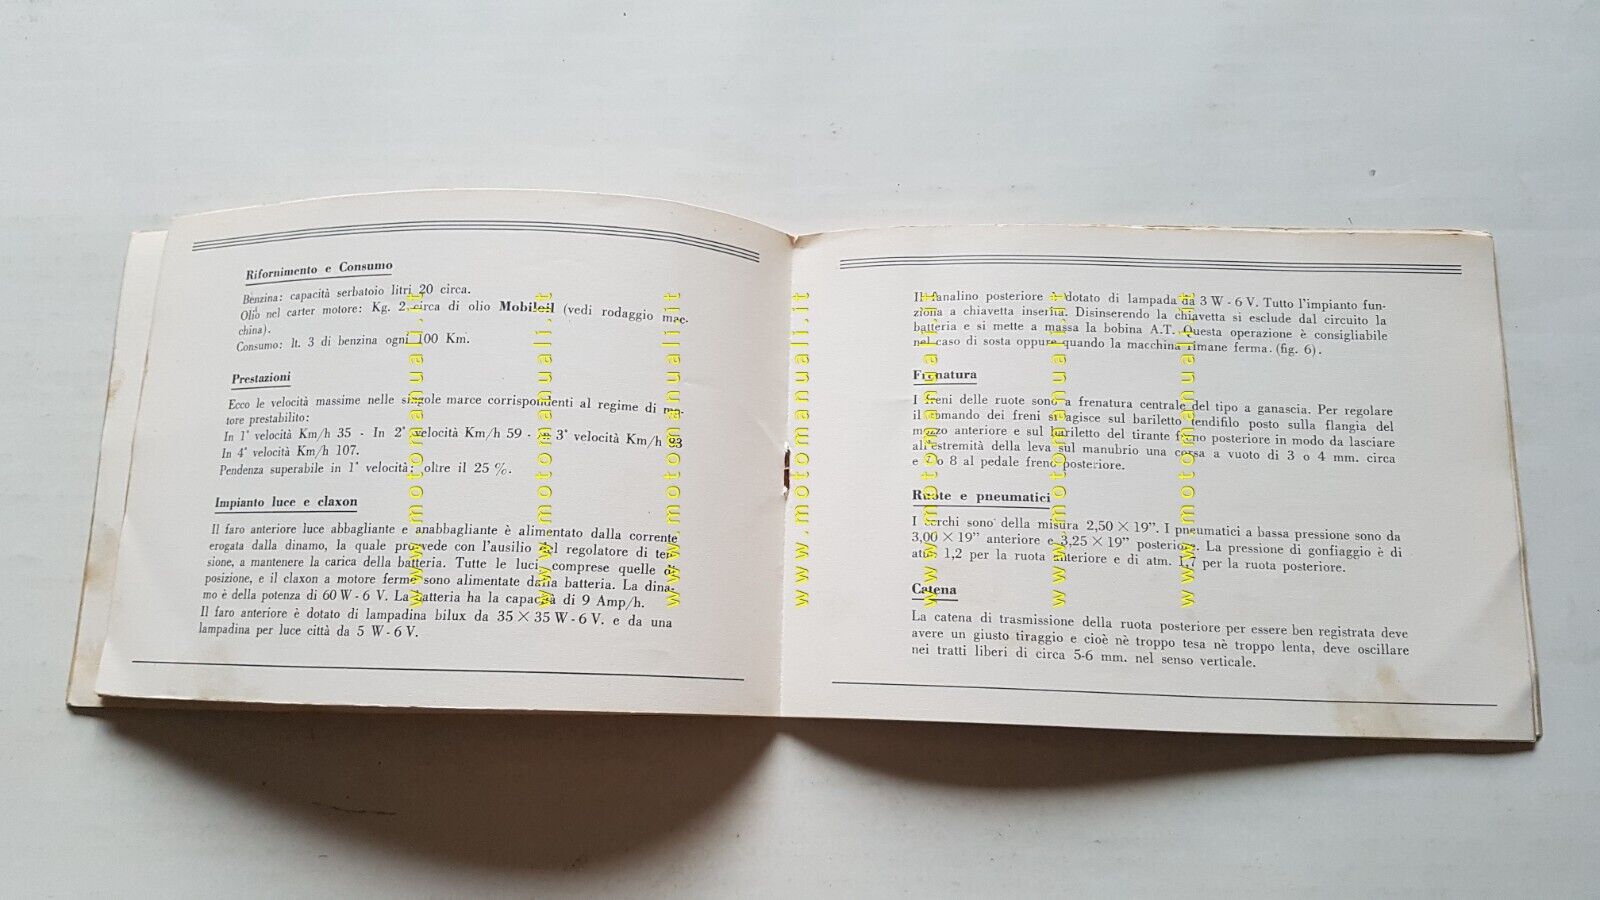 Rifornimento e Consumo
Benzina: capacità serbatoio litri 20 circa.
Olio nel carter motore: Kg. 2 circa di olio Mobiloil (vedi rodaggio mac-
china).
Consumo: lt. 3 di benzina ogni 100 Km.
Prestazioni
Ecco le velocità massime nelle singole marce corrispondenti al regime di mo-
tore prestabilito:
In 1ª velocità Km/h 35 - In 2ª velocità Km/h 59 - In 3ª velocità Km/h 83
In 4ª velocità Km/h 107.
Pendenza superabile in 1ª velocità: oltre il 25 %.
Impianto luce e claxon
Il faro anteriore luce abbagliante e anabbagliante è alimentato dalla corrente
erogata dalla dinamo, la quale provvede con l'ausilio del regolatore di ten-
sione, a mantenere la carica della batteria. Tutte le luci, comprese quelle di
posizione, e il claxon a motore fermo sono alimentate dalla batteria. La dina-
mo è della potenza di 60 W - 6 V. La batteria ha la capacità di 9 Amp/h.
Il faro anteriore è dotato di lampadina bilux da 35 × 35 W - 6 V. e da una
lampadina per luce città da 5 W - 6 V.
Il fanalino posteriore è dotato di lampada da 3 W - 6 V. Tutto l'impianto fun-
ziona a chiavetta inserita. Disinserendo la chiavetta si esclude dal circuito la
batteria e si mette a massa la bobina A.T. Questa operazione è consigliabile
nel caso di sosta oppure quando la macchina rimane ferma. (fig. 6).
Frenatura
I freni delle ruote sono a frenatura centrale del tipo a ganascia. Per regolare
il comando dei freni si agisce sul bariletto tendifilo posto sulla flangia del
mozzo anteriore e sul bariletto del tirante freno posteriore in modo da lasciare
all'estremità della leva sul manubrio una corsa a vuoto di 3 o 4 mm. circa
e 7 o 8 al pedale freno posteriore.
Ruote e pneumatici
I cerchi sono della misura 2,50 × 19”. I pneumatici a bassa pressione sono da
3,00 × 19” anteriore e 3,25 × 19” posteriore. La pressione di gonfiaggio è di
atm. 1,2 per la ruota anteriore e di atm. 1,7 per la ruota posteriore.
Catena
La catena di trasmissione della ruota posteriore per essere ben registrata deve
avere un giusto tiraggio e cioè nè troppo tesa nè troppo lenta, deve oscillare
nei tratti liberi di circa 5-6 mm. nel senso verticale.
www.motomanuali.it
www.motomanuali.it
www.motomanuali.it
www.motomanuali.it
www.motomanuali.it
www.motomanuali.it
www.motomanuali.it